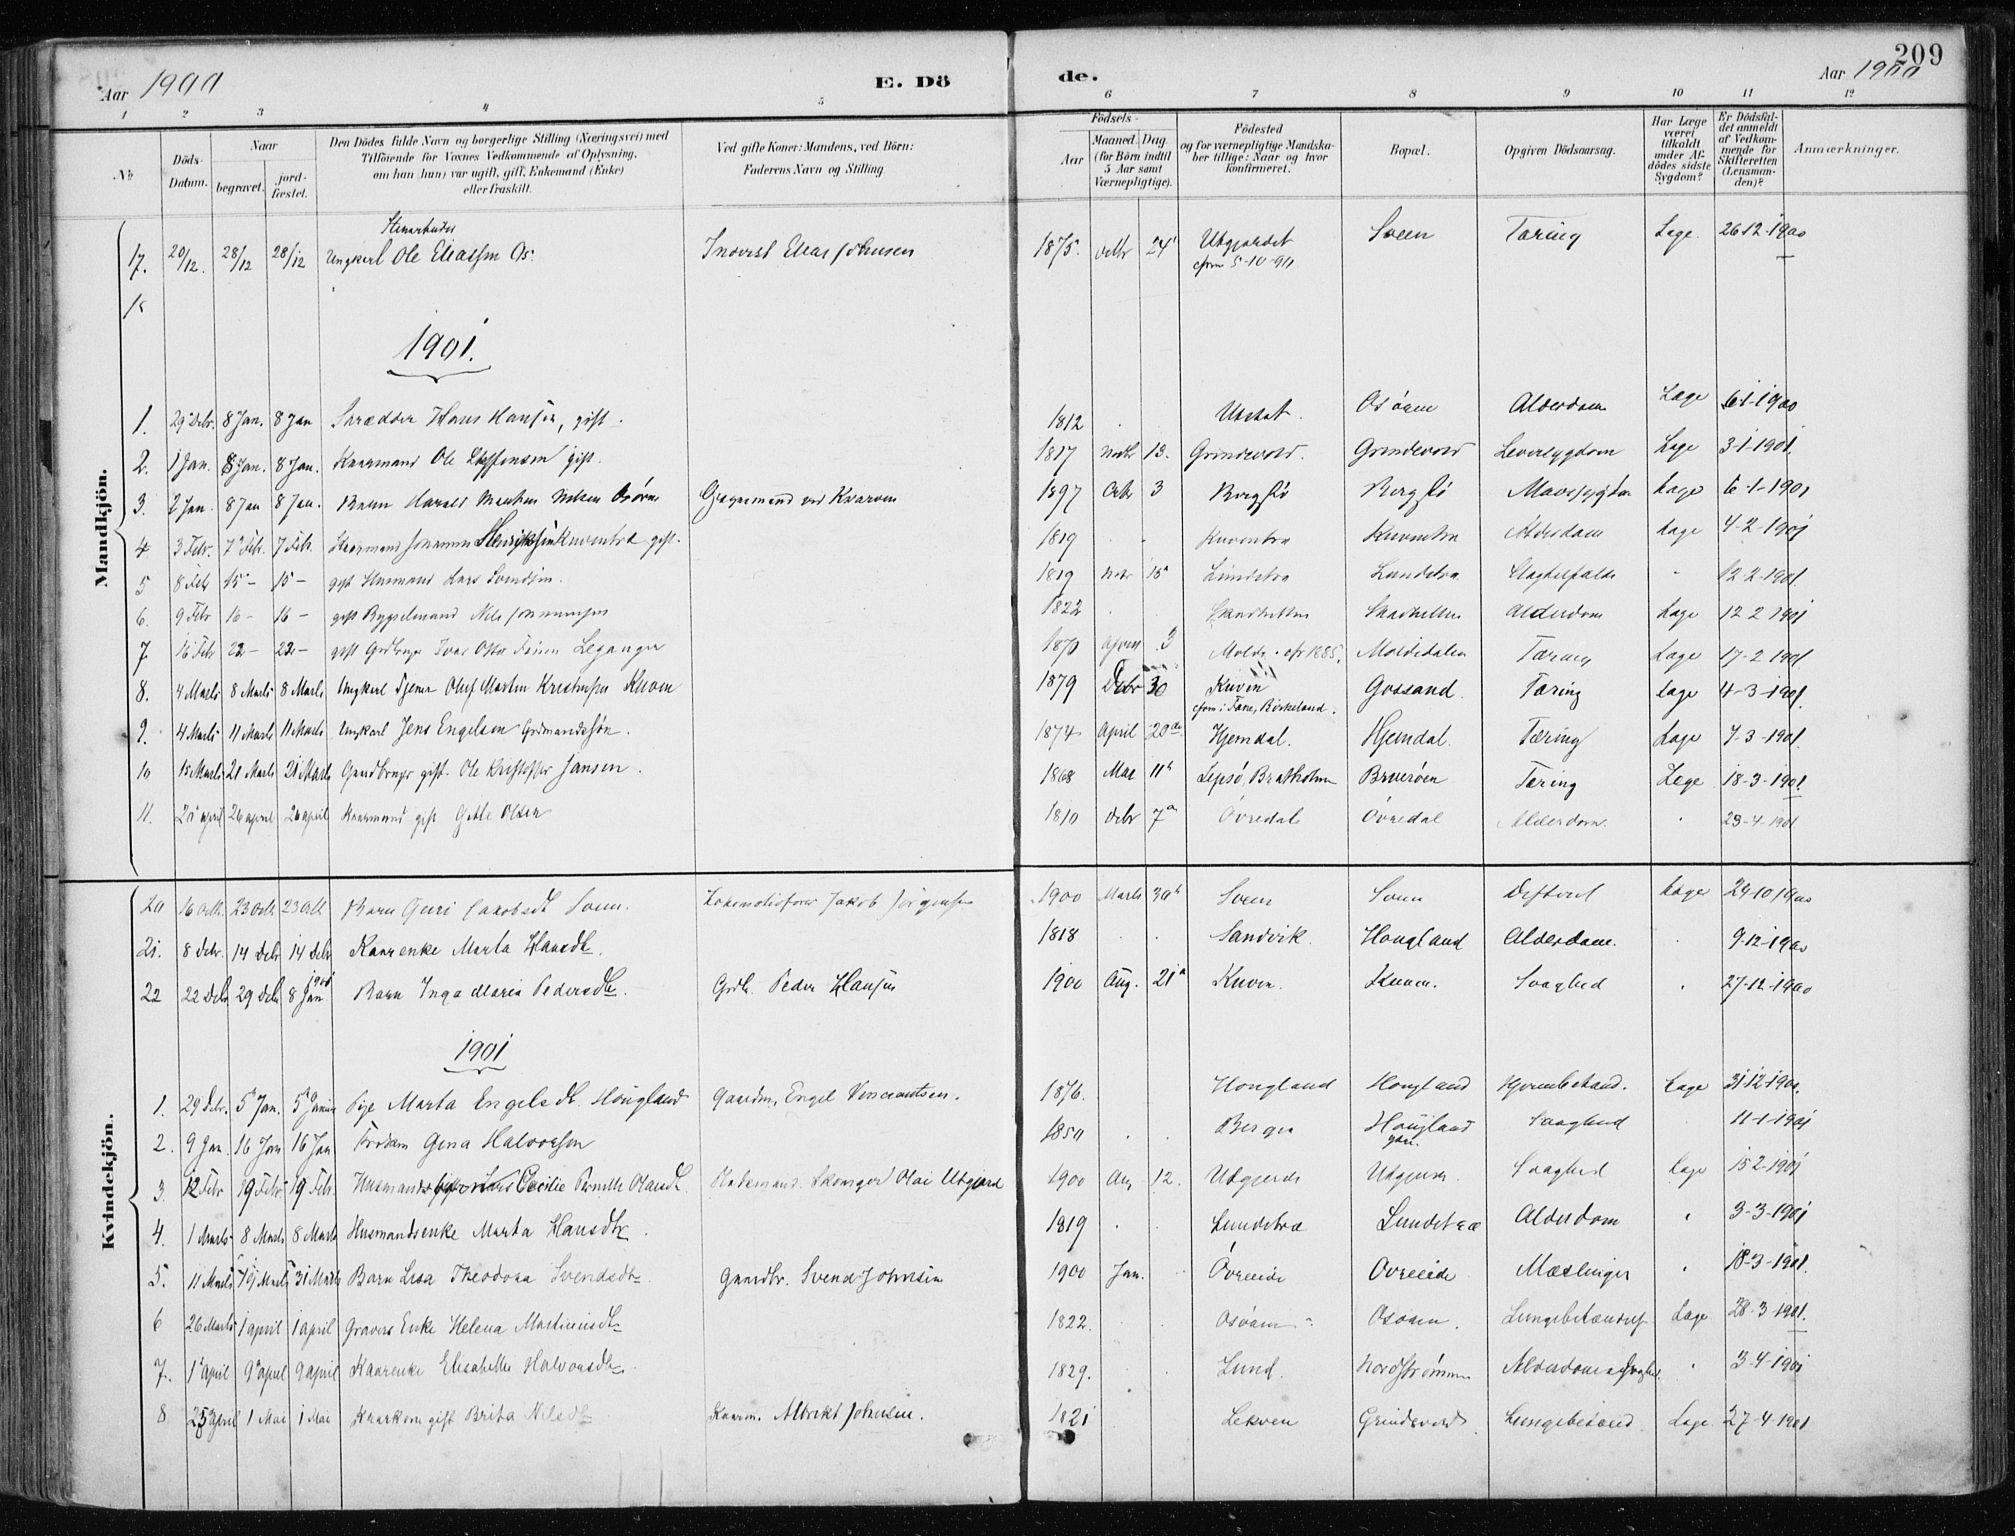 209
Aar 1900 E. Döde. Aar 1900
1 2 3 4 5 6 7 8 9 10 11 12
№ Döds-Datum. Naar begravet. jordfæstet. Den Dödes fulde Navn og borgerlige Stilling (Næringsvei) med Tilföiende for Voxnes Vedkommende af Oplysning, om han (hun) var ugift, gift, Enkemand (Enke) eller fraskilt. Ved gifte Koner: Mandens, ved Börn: Faderens Navn og Stilling. Födsels- Aar Maaned. Dag. (for Börn indtil 5 Aar samt Værnepligtige). Födested og for værnepligtige Mandskaber tillige: Naar og hvor konfirmeret. Bopæl. Opgiven Dödsaarsag. Har Læge været tilkaldt under Afdödes sidste Sygdom? Er Dödsfaldet anmeldt af Vedkommende for Skifteretten (Lensmanden)? Anmærkninger.
Mandkjön.
17. 20/12. 28/12 28/12 Ungkarl Ole Eliassen Os. Inderst Elias Johnsen 1875. Debr 24 Utgjordet Sveen Tæring Læge 26-12-1900
18
1901.
1. 29 Debr. 8 Jan. 8 Jan Skrædder Hans Hansen, gift. 1812 Ulstat. Osöien Alderdom Læge 6-1-1900
2. 1 Jan. 8 Jan. 8 Jan. Kaarmand Ole Steffensen gift. 1817 Novbr 13. Grindevold. Grindevold Leversygdom Læge 3-1-1901.
3. 2 Jan. 8 Jan 8 Jan. Barn Harald Nilsen Osören 1897 Octr 3 Læge 6-1-1901
4 3 Febr. 7 Febr. 7 Febr. Kaarmand Johannes Henriksen Kuventræ gift. 1819 Kuventræ Kuventræ Alderdom Læge 4-2-1901
5 8 Febr 15 - 15 - gift Husmand Lars Svendsen. 1819 Novr 15 Lundetræ Lundetræ 12-2-1901.
6. 9 Febr 16 - 16 - gift Bygselmand Nils 1822 Alderdom Læge 12-2-1901
7 16 Febr 22 - 22 - gift Grdbruger Ivar Olsen Leganger 1870 3 Molde Moldedalen Tæring Læge 17-2-1901
8. 4 Marts 8 Marts 8 Marts Ungkarl Tjener Oluf Martin Kristensen Kuven 1879 Debr 30 Kuven cfrm i Fane, Birkeland. Gossand. Tæring Læge 4-3-1901.
9. 4 Marts 11 Marts 11 Marts Ungkarl Jens Engelsen Grdmandssön. 1874 April 20de Hjemdal. Hjemdal. Tæring Læge 7-3-1901.
10 15 Marts 21 Marts 21 Marts Gaardbruger gift. Ole Kristoffer Jansen. 1868 Mai 11 Lepsö, Bratholmen Brueröen Tæring Læge 18-3-1901
11. 21 april 26 april 26 april Kaarmand gift Gitle Olsen 1810 Debr 7 Övredal Övredal Alderdom. 23-4-1901
Kvindekjön.
20 16 Octr. 23 Octr 23 Octr Barn Guri Jakobsdtr Sveen. Lokomotivförer Jakob Jörgensen 1900 Marts 30 Sveen Sveen Difterit Læge 24-10-1900
21. 8 Debr. 14 Debr 14 Debr Kaarenke Marta Hansdtr. 1818 Sandvik. Hougland Alderdom. 9-12-1900
22 22 Debr 29 Debr 8 Jan 1901 Barn Inga Maria Pedersdtr. Grdb. Peder Hansen 1900 Aug. 21 Kuven. Kuven. Svaghed 27-12-1900
1901
1. 29 Debr. 5 Jan. 5 Januar Pige Marta Engelsdtr. Hougland Gaardm. Engel Vincentsen. 1876. Hougland Hougland Hjernebetænd. Læge 31-12-1900.
2. 9 Jan. 16 Jan 16 Jan Gina Halvorsen 1850 Bergen Hougland Svaghed 11-1-1901
3. 12 Febr 19 Febr 19 Febr. Cecilie Pernille Olausdtr. Olai Utgjord 1900 Aug 12. Utgjerde Utgjerde. Svaghed Læge 15-2-1901
4. 1 Marts 8 Marts 8 Marts Husmandsenke Marta Hansdtr. 1819 Lundetræ Lundetræ Alderdom 3-3-1901
5. 11 Marts 19 Marts 31 Marts Barn Lisa Theodora Svendsdtr. Gaardbr. Svend Johnsen 1900 Jan. Övreeide Övreeide Mæslinger 18-3-1901.
6 26 Marts 1 april 1 april Gravers Enke Helena Martinusdtr 1822. Osöien Osöien. Lungebetændelse Læge 28-3-1901.
7. 1 april 9 april 9 april Kaarenke Elisabethe Halvorsdtr. 1829. Lund. Nordströmmen Alderdomssvaghed 3-4-1901
8 25 April 1 Mai 1 Mai Kaarkone gift Brita Nilsdtr Kaarm. Albrikt Johnsen. 1821 Lekven Grindevold Lungebetænd Læge. 27-4-1901